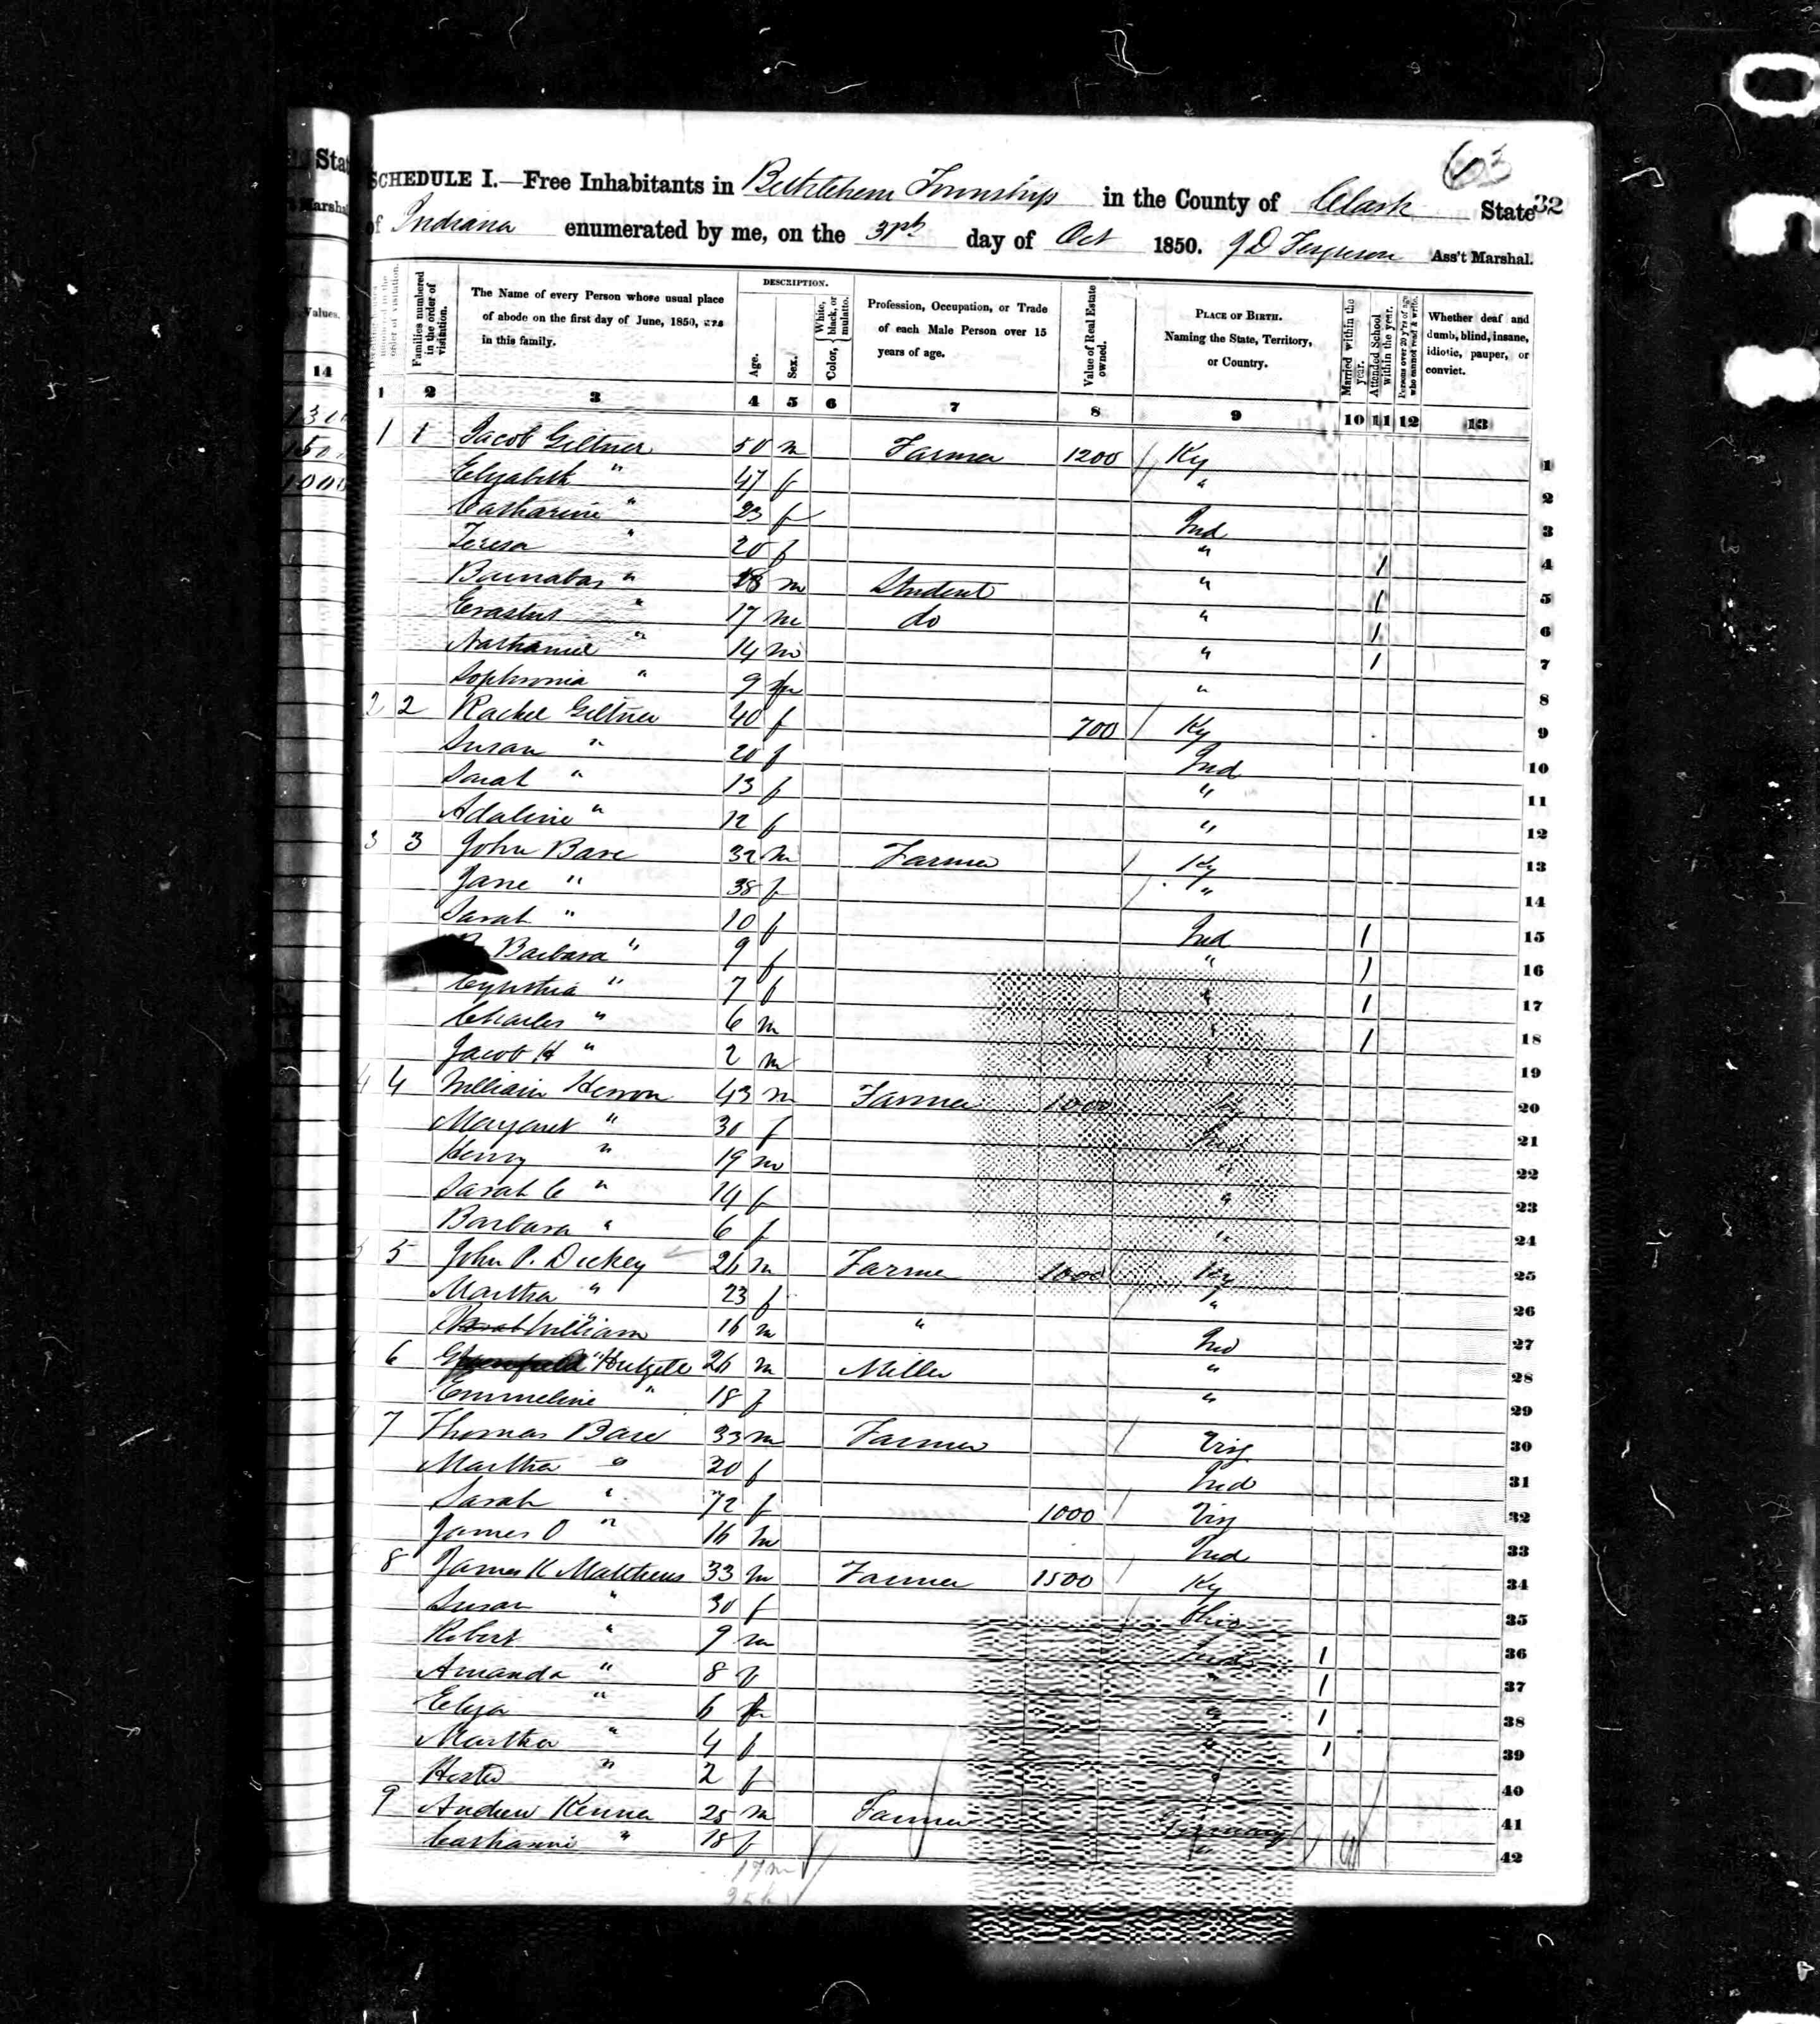 63
SCHEDULE I.—Free Inhabitants in Bethlehem Township in the County of Clark State 32
of Indiana enumerated by me, on the 3rd day of Oct 1850. J D Ferguson Ass't Marshal.
Families numbered in the order of visitation.
The Name of every Person whose usual place of abode on the first day of June, 1850, was in this family.
DESCRIPTION.
Age.
Sex.
Color, White, black, or mulatto.
Profession, Occupation, or Trade of each Male Person over 15 years of age.
Value of Real Estate owned.
PLACE OF BIRTH. Naming the State, Territory, or Country.
Married within the year.
Attended School within the year.
Persons over 20 y'rs of age who cannot read & write.
Whether deaf and dumb, blind, insane, idiotic, pauper, or convict.
1 2 3 4 5 6 7 8 9 10 11 12 13
1 1 Jacob Giltner 50 m Farmer 1200 / Ky 1
Elizabeth " 47 f / " 2
Catharine " 23 f Ind 3
Teresa " 20 f " 1 4
Barnabas " 18 m Student " 1 5
Erastus " 17 m do " 1 6
Nathaniel " 14 m " 1 7
Sophronia " 9 f " 8
2 2 Rachel Giltner 40 f 700 / Ky 9
Susan " 20 f Ind 10
Sarah " 13 f " 11
Adaline " 12 f " 12
3 3 John Bare 32 m Farmer / Ky 13
Jane " 38 f / " 14
Sarah " 10 f Ind 1 15
Barbara " 9 f " 1 16
Cynthia " 7 f " 1 17
Charles " 6 m " 1 18
Jacob H " 2 m " 19
4 4 William Herron 43 m Farmer 1000 Ky 20
Margaret " 30 f Ind 21
Henry " 19 m " 22
Sarah C " 14 f " 23
Barbara " 6 f " 24
5 5 John P. Dickey 26 m Farmer 1000 Ky 25
Martha " 23 f / " 26
William 16 m " Ind 27
6 26 m Miller " 28
Emmeline " 18 f " 29
7 Thomas Bare 33 m Farmer / Virg 30
Martha " 20 f Ind 31
Sarah " 72 f 1000 / Virg 32
James O " 16 m Ind 33
8 James K Matthews 33 m Farmer 1500 / Ky 34
Susan " 30 f / Ohio 35
Robert " 9 m Ind 1 36
Amanda " 8 f " 1 37
Eliza " 6 f " 1 38
Martha " 4 f " 1 39
Hester " 2 f " 40
9 Andrew Kenner 25 m Farmer Germany 41
Catharine " 18 f " 42
17 m
25 f